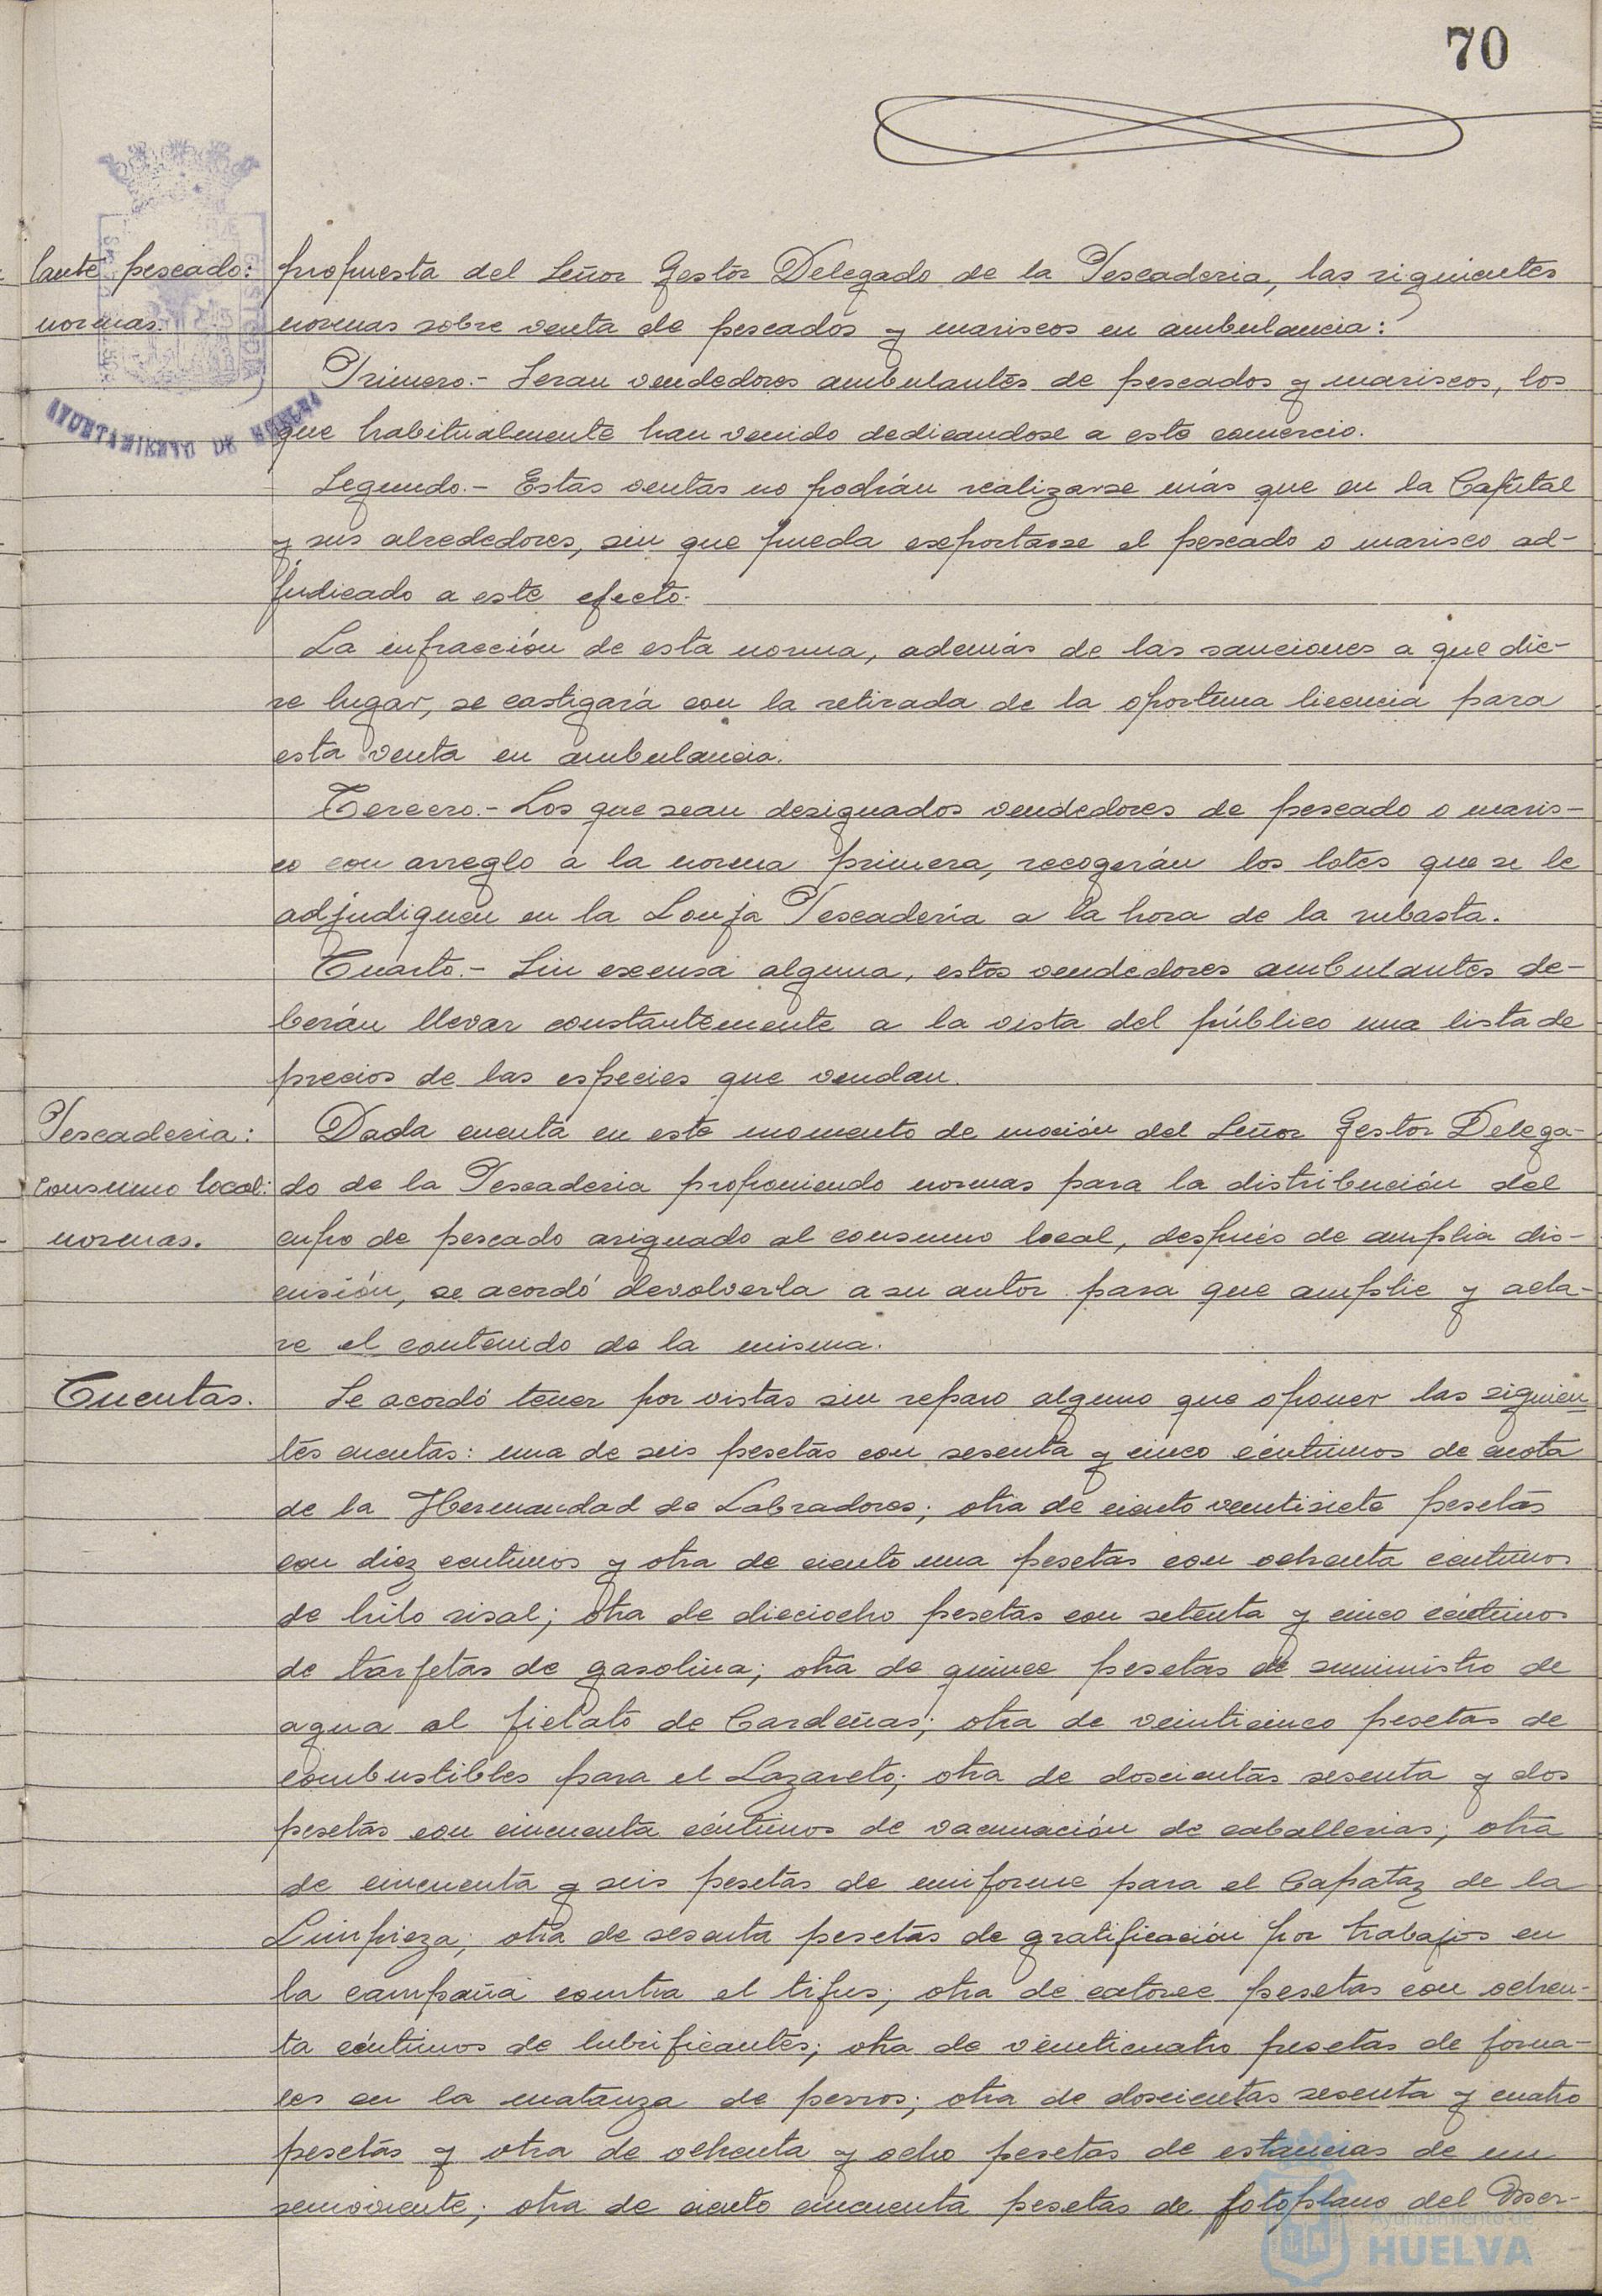 70
lante pescado: propuesta del Señor Gestor Delegado de la Pescaderia, las siguientes
normas. normas sobre venta de pescados y mariscos en ambulancia:
Primero.- Seran vendedores ambulantes de pescados y mariscos, los
que habitualmente han venido dedicandose a este comercio.
AYUNTAMIENTO DE HUELVA
Segundo.- Estas ventas no podrán realizarse más que en la Capital
y sus alrededores, sin que pueda exportarse el pescado o marisco ad-
judicado a este efecto.
La infracción de esta norma, además de las sanciones a que die-
re lugar, se castigará con la retirada de la oportuna licencia para
esta venta en ambulancia.
Tercero.- Los que sean designados vendedores de pescado o maris-
co con arreglo a la norma primera, recogerán los lotes que se le
adjudiquen en la Lonja Pescadería a la hora de la subasta.
Cuarto.- Sin excusa alguna, estos vendedores ambulantes de-
berán llevar constantemente a la vista del público una lista de
precios de las especies que vendan.
Pescaderia: Dada cuenta en este momento de moción del Señor Gestor Delega-
consumo local: do de la Pescaderia proponiendo normas para la distribución del
normas. cupo de pescado asignado al consumo local, después de amplia dis-
cusión, se acordó devolverla a su autor para que amplie y acla-
re el contenido de la misma.
Cuentas. Se acordó tener por vistas sin reparo alguno que oponer las siguien-
tes cuentas: una de seis pesetas con sesenta y cinco céntimos de cuota
de la Hermandad de Labradores; otra de ciento veintisiete pesetas
con diez centimos y otra de ciento una pesetas con ochenta centimos
de hilo sisal; otra de dieciocho pesetas con setenta y cinco céntimos
de tarjetas de gasolina; otra de quince pesetas de suministro de
agua al fielato de Cardeñas; otra de veinticinco pesetas de
combustibles para el Lazareto; otra de doscientas sesenta y dos
pesetas con cincuenta céntimos de vacunación de caballerias; otra
de cincuenta y seis pesetas de uniforme para el Capataz de la
Limpieza; otra de sesenta pesetas de gratificación por trabajos en
la campaña contra el tifus; otra de catorce pesetas con ochen-
ta céntimos de lubrificantes; otra de veinticuatro pesetas de jorna-
les en la matanza de perros; otra de doscientas sesenta y cuatro
pesetas y otra de ochenta y ocho pesetas de estancias de un
semoviente; otra de ciento cincuenta pesetas de fotoplano del
Ayuntamiento de
HUELVA